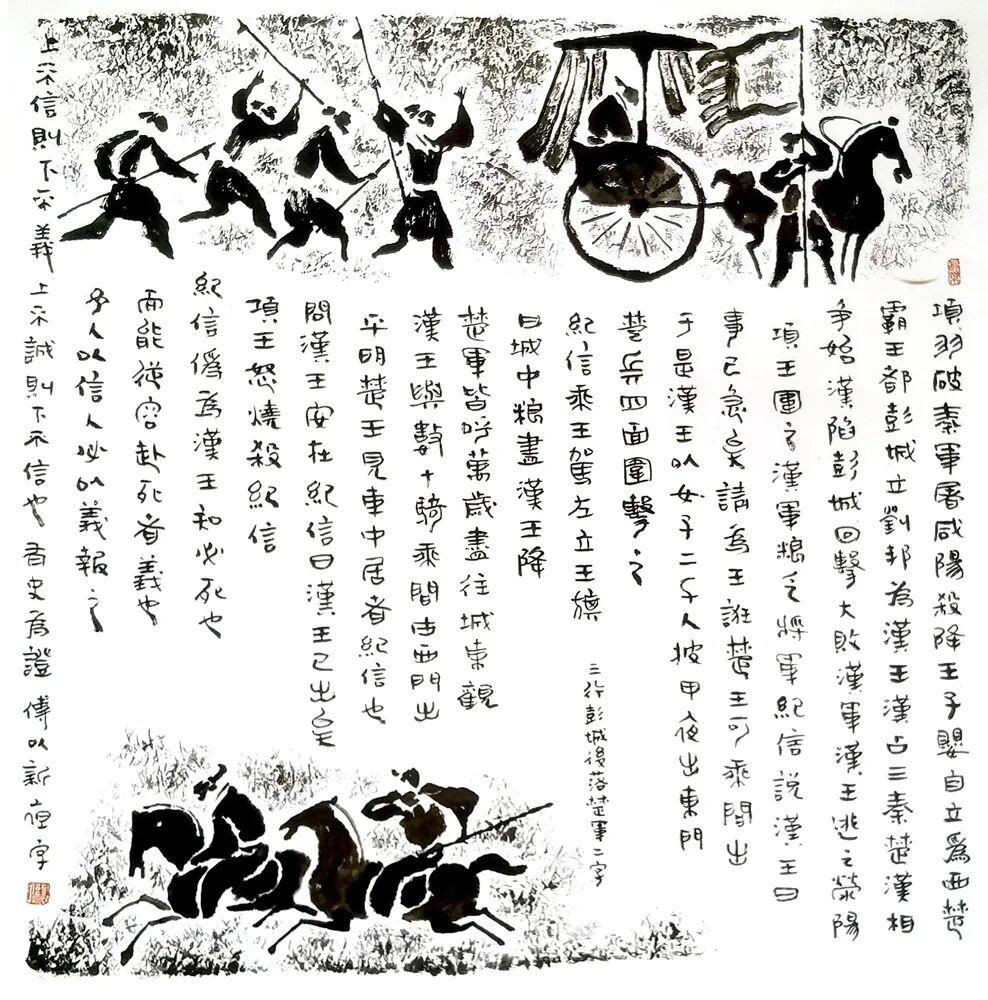 項羽破秦軍屠咸陽殺降王子嬰自立為西楚
霸王都彭城立劉邦為漢王漢占三秦楚漢相
爭始漢陷彭城回擊大敗漢軍漢王逃之滎陽
項王圍之漢軍粮乏將軍紀信説漢王曰
事已急矣請為王誑楚王可乘間出
于是漢王以女子二千人披甲夜出東門
楚兵四面圍擊之
紀信乘王駕左立王旗
曰城中粮盡漢王降
楚軍皆呼萬歲盡往城東觀
漢王與數十騎乘間由西門出
平明楚王見車中居者紀信也
問漢王安在紀信曰漢王已出矣
項王怒燒殺紀信
紀信偽為漢王和必死也
而能從容赴死者義也
予人以信人必以義報之
上不信則下不義上不誠則下不信也有史為證傅以新寫字
三行彭城後落楚軍二字